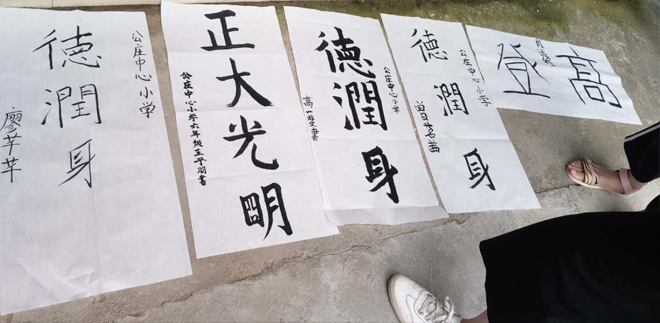 公庄中心小学
德潤身
廖芊芊
正大光明
公庄中心小学六年級
公庄中心小学
德潤身
高一雯書
公庄中心小学
德潤身
曾茗茜
登高